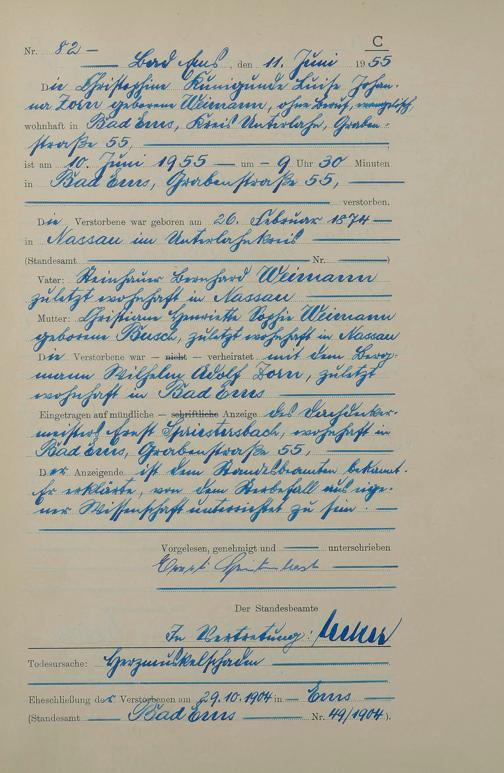 C
Nr. 82 –
Bad Ems, den 11. Juni 1955
Die Christophine Kunigunde Luise Johan-
na Zorn geborene Weimann, ohne Beruf, evangelisch,
wohnhaft in Bad Ems, Kreis Unterlahn, Graben-
straße 55,
ist am 10. Juni 1955 — um — 9 Uhr 30 Minuten
in Bad Ems, Grabenstraße 55,
verstorben.
Die Verstorbene war geboren am 26. Februar 1874 —
in Nassau im Unterlahnkreis
(Standesamt Nr. )
Vater: Steinhauer Bernhard Weimann
zuletzt wohnhaft in Nassau
Mutter: Christiane Henriette Sophie Weimann
geborene Busch, zuletzt wohnhaft in Nassau
Die Verstorbene war — nicht — verheiratet mit dem Berg-
mann Wilhelm Adolf Zorn, zuletzt
wohnhaft in Bad Ems
Eingetragen auf mündliche — schriftliche Anzeige des Dachdecker-
meisters Ernst wohnhaft in
Bad Ems, Grabenstraße 55,
Der Anzeigende ist dem Standesbeamten bekannt.
Er erklärte, von dem Sterbefall aus eige-
ner Wissenschaft unterrichtet zu sein. —
Vorgelesen, genehmigt und unterschrieben
Ernst
Der Standesbeamte
In Vertretung:
Todesursache: Herzmuskelschaden
Eheschließung der Verstorbenen am 29.10.1904 in — Ems —
(Standesamt Bad Ems Nr. 49/1904).